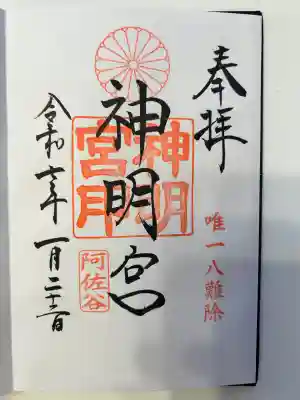 奉拝
唯一八難除
神明宮
神明宮印
阿佐谷
令和七年 一月二十三日